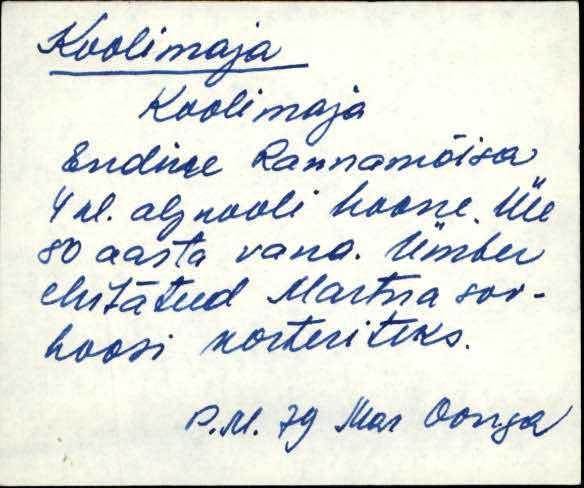 Koolimaja
Koolimaja
Endine Rannamõisa
4 kl. algkooli hoone. Üle
80 aasta vana. Ümber
ehitatud Martna sov-
hoosi korteriteks.
P.M. 79 Mar Oonga